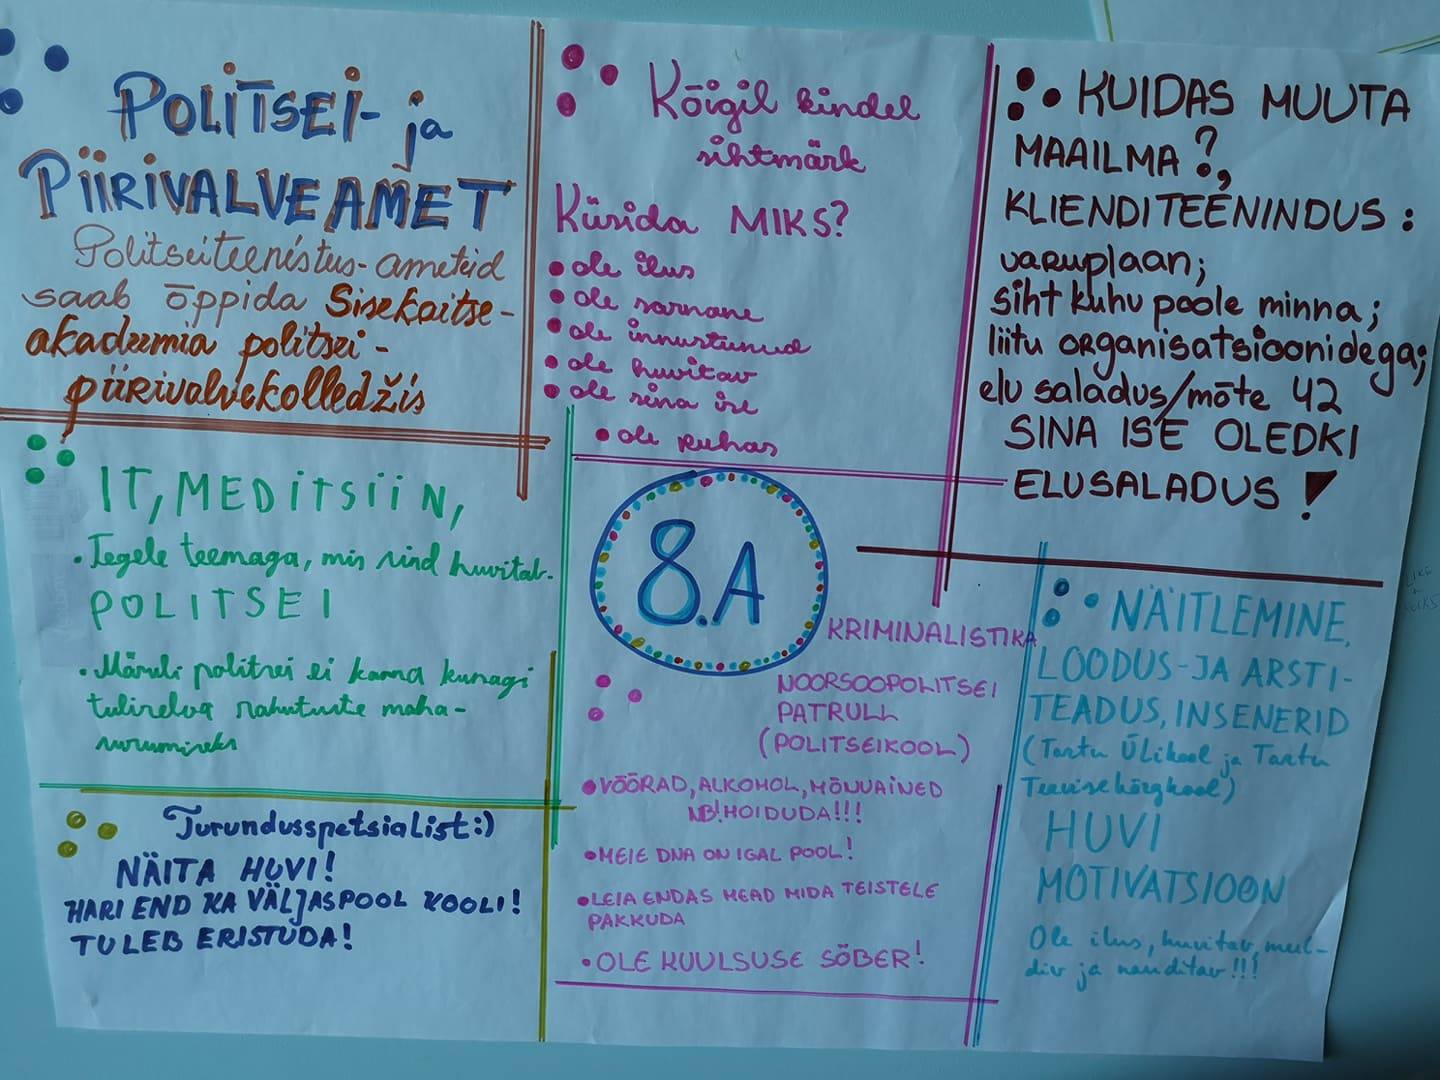 POLITSEI- ja
PIIRIVALVEAMET
Politseiteenistus-ameteid
saab õppida Sisekaitse-
akadeemia politsei-
piirivalvekolledžis
Kõigil kindel
sihtmärk
Küsida MIKS?
• ole ilus
• ole sarnane
• ole innustunud
• ole huvitav
• ole sina ise
• ole rahas
KUIDAS MUUTA
MAAILMA?,
KLIENDITEENINDUS:
varuplaan;
siht kuhu poole minna;
liitu organisatsioonidega;
elu saladus/mõte 42
SINA ISE OLEDKI
ELUSALADUS!
IT, MEDITSIIN,
• Tegele teemaga, mis sind huvitab.
POLITSEI
• Märuli politsei ei kanna kunagi
tulirelva rahutuste maha-
surumiseks
8.A
KRIMINALISTIKA
NOORSOOPOLITSEI
PATRULL
(POLITSEIKOOL)
• VÕÕRAD, ALKOHOL, MÕNUAINED
NB! HOIDUDA!!!
• MEIE DNA ON IGAL POOL!
• LEIA ENDAS HEAD MIDA TEISTELE
PAKKUDA
• OLE KUULSUSE SÕBER!
NÄITLEMINE,
LOODUS-JA ARSTI-
TEADUS, INSENERID
(Tartu Ülikool ja Tartu
Tervisekõrgkool)
HUVI
MOTIVATSIOON
Ole ilus, huvitav, meel-
div ja nauditav!!!
Turundusspetsialist:)
NÄITA HUVI!
HARI END KA VÄLJASPOOL KOOLI!
TULEB ERISTUDA!